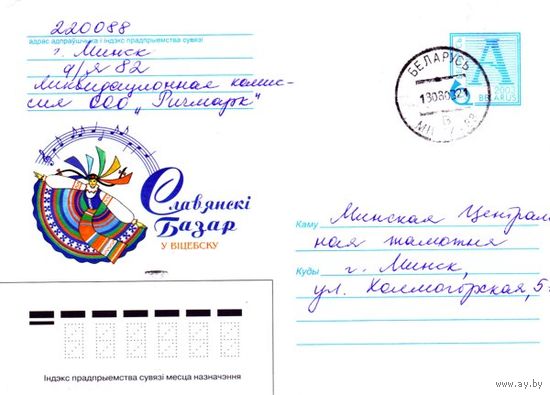 220088
адрас адпраўшчыка і індэкс прадпрыемства сувязі
г. Минск
а/я 82
Ликвидационная комис-
сия ООО „Ричмарк"
БЕЛАРУСЬ
А
2003
BELARUS
Славянскі
Базар
У ВІЦЕБСКУ
Каму Минская Централь
ная таможня
Куды г. Минск,
ул. Холмогорская, 5
Індэкс прадпрыемства сувязі месца назначэння
www.ay.by